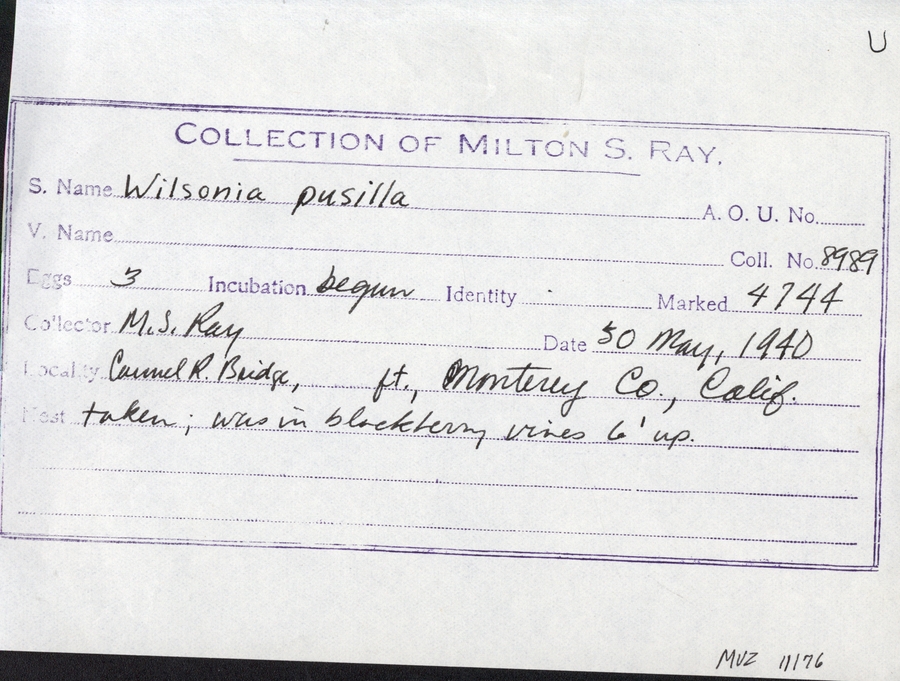 U
COLLECTION OF MILTON S. RAY.
S. Name Wilsonia pusilla A. O. U. No.
V. Name Coll. No. 8989
Eggs 3 Incubation begun Identity Marked 4744
Collector M.S. Ray Date 30 May, 1940
Locality Carmel R. Bridge, ft., Monterey Co., Calif.
Nest taken; was in blackberry vines 6' up.
MVZ 11/76